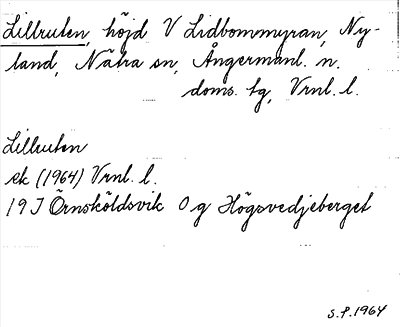 Lillruten, höjd V Lidbommyran, Ny-
land, Nätra sn, Ångermanl. n.
doms. tg, Vrnl. l.
Lillruten
ek (1964) Vrnl. l.
19 J Örnsköldsvik O g Högsvedjeberget
S.P. 1964